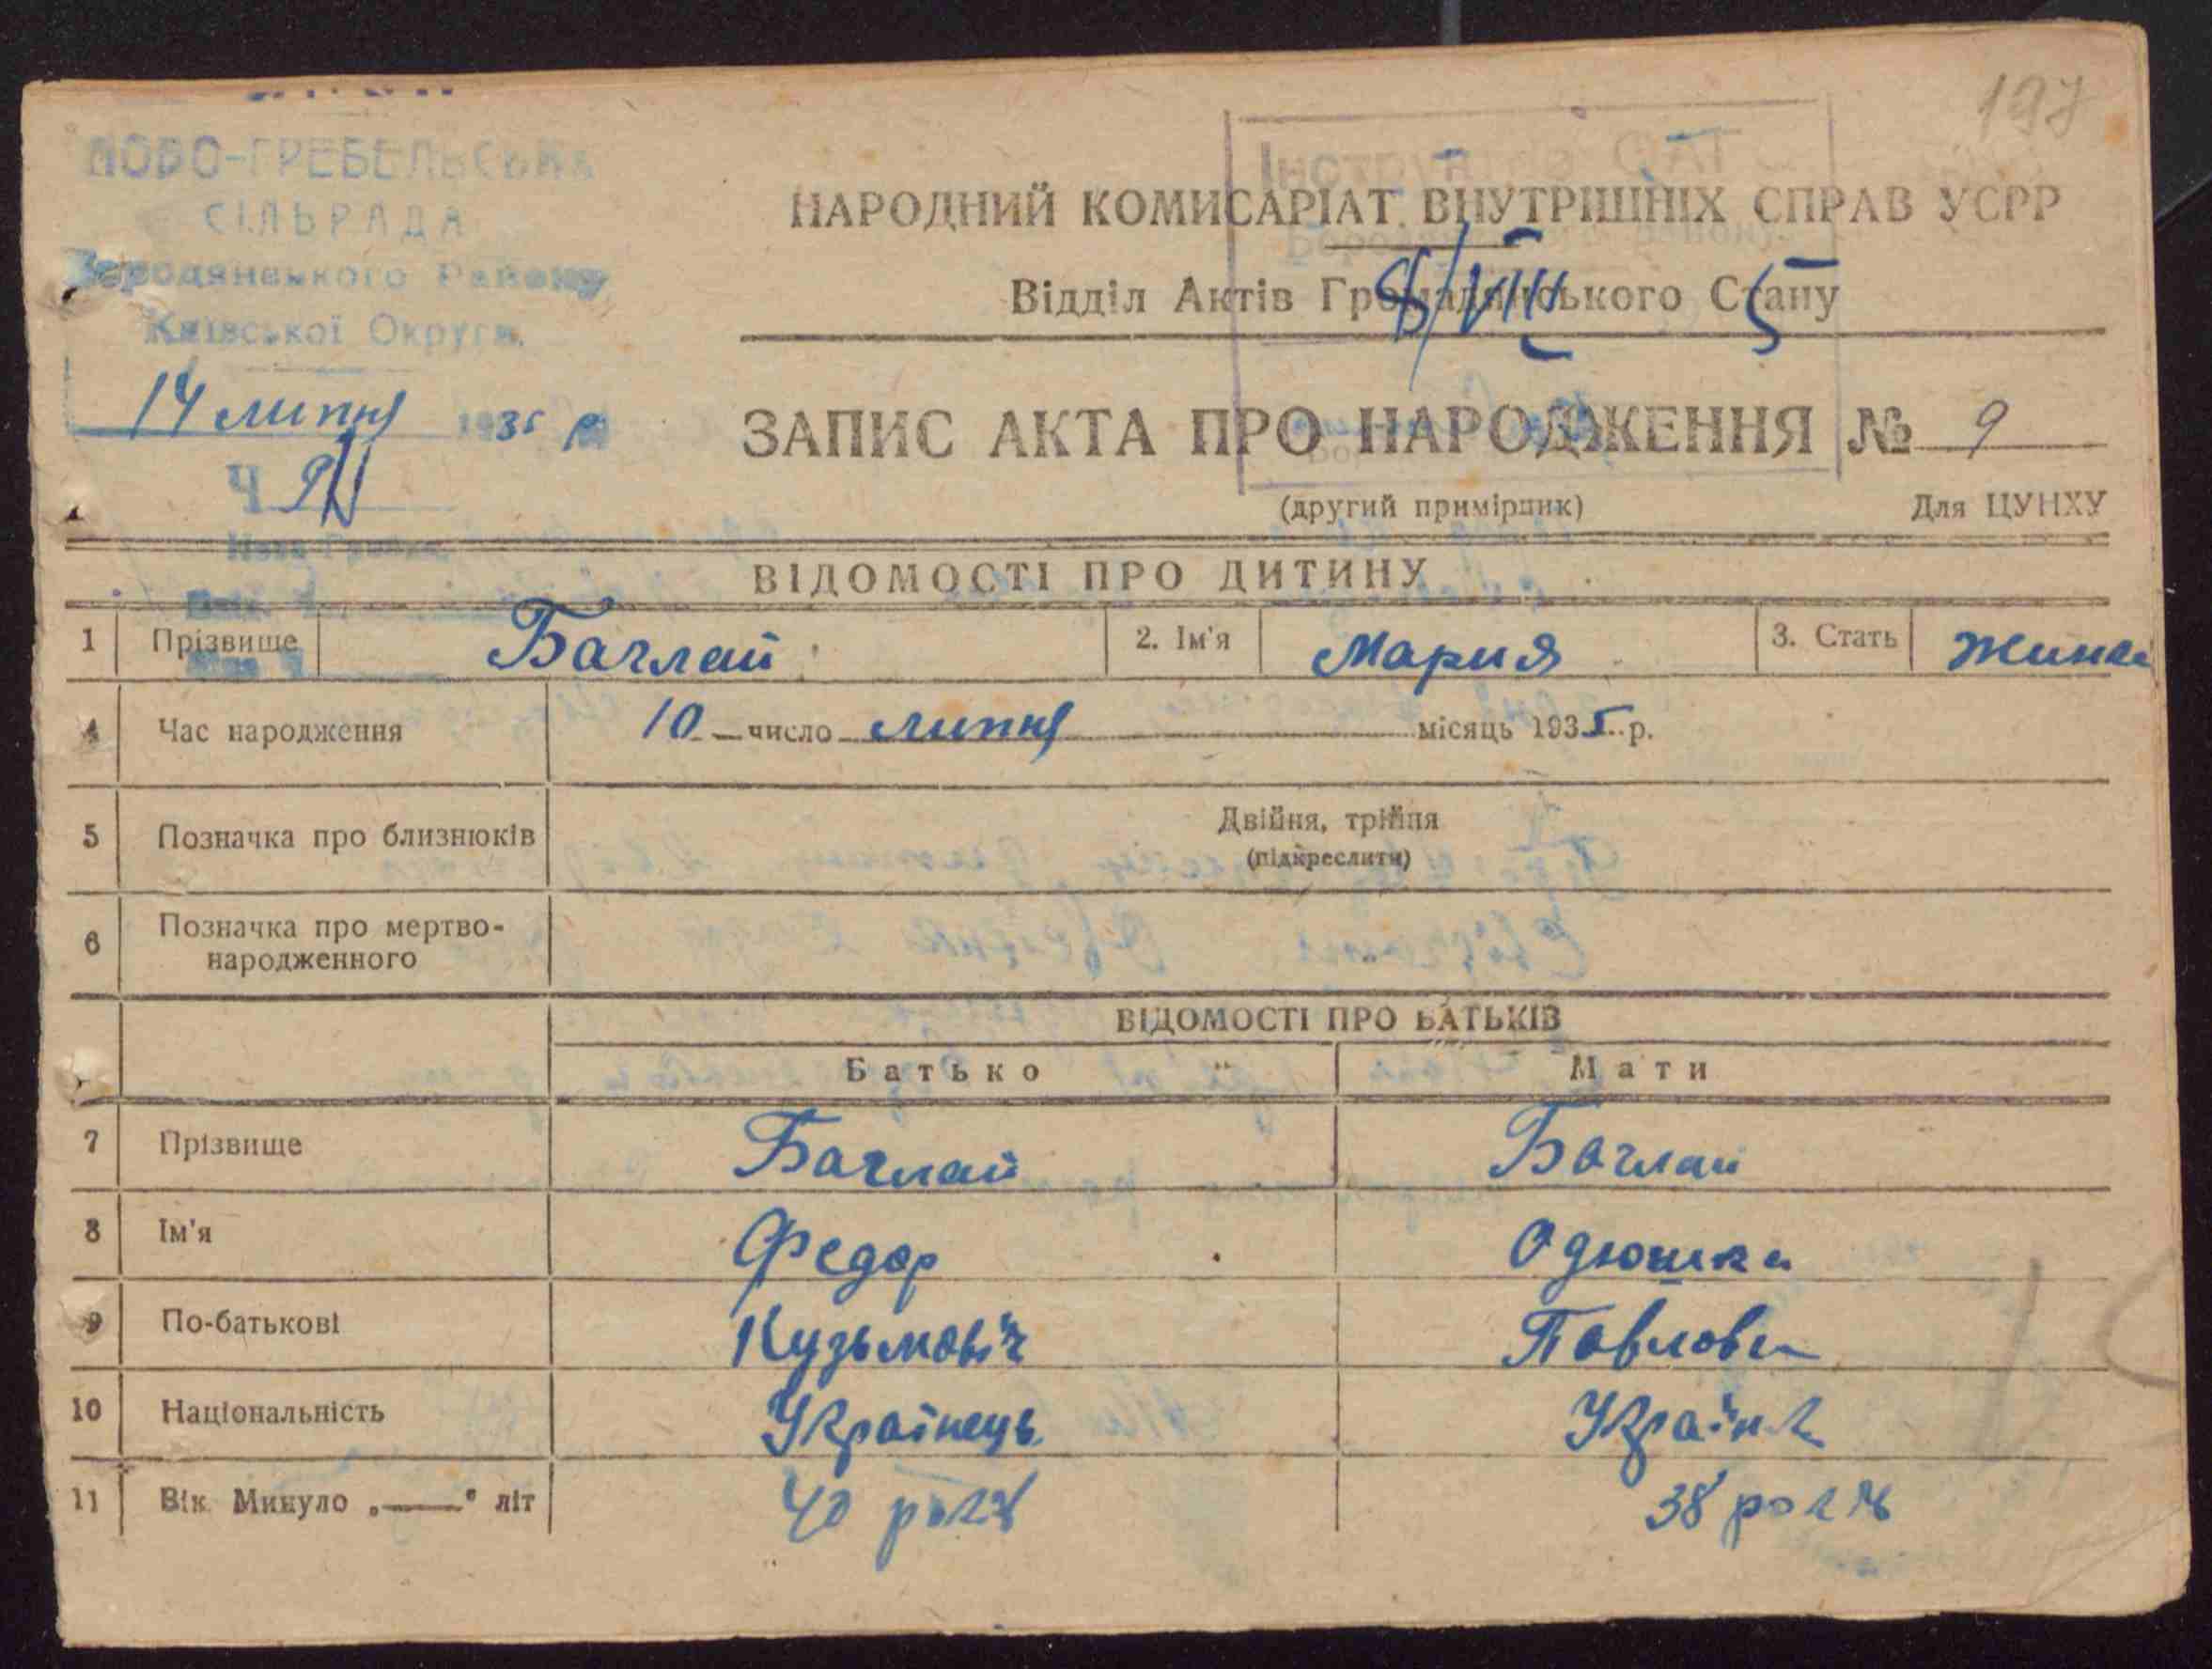 197
НОВО-ГРЕБЕЛЬСЬКА
СІЛЬРАДА
Бородянського Району
Київської Округи.
14 липня 1935 р
Ч 9
НАРОДНИЙ КОМИСАРІАТ ВНУТРІШНІХ СПРАВ УСРР
Відділ Актів Громадянського Стану
ЗАПИС АКТА ПРО НАРОДЖЕННЯ № 9
(другий примірник) Для ЦУНХУ
ВІДОМОСТІ ПРО ДИТИНУ
1 Прізвище Баглай 2. Ім'я Мария 3. Стать Жинка
4 Час народження 10 число липня місяць 1935 р.
5 Позначка про близнюків Двійня, трійня
(підкреслити)
6 Позначка про мертво-
народженного
ВІДОМОСТІ ПРО БАТЬКІВ
Батько Мати
7 Прізвище Баглай Баглай
8 Ім'я Федор Одюшка
9 По-батькові Кузьмовіч Павловна
10 Національність Українець Українка
11 Вік Минуло „——" літ 40 38